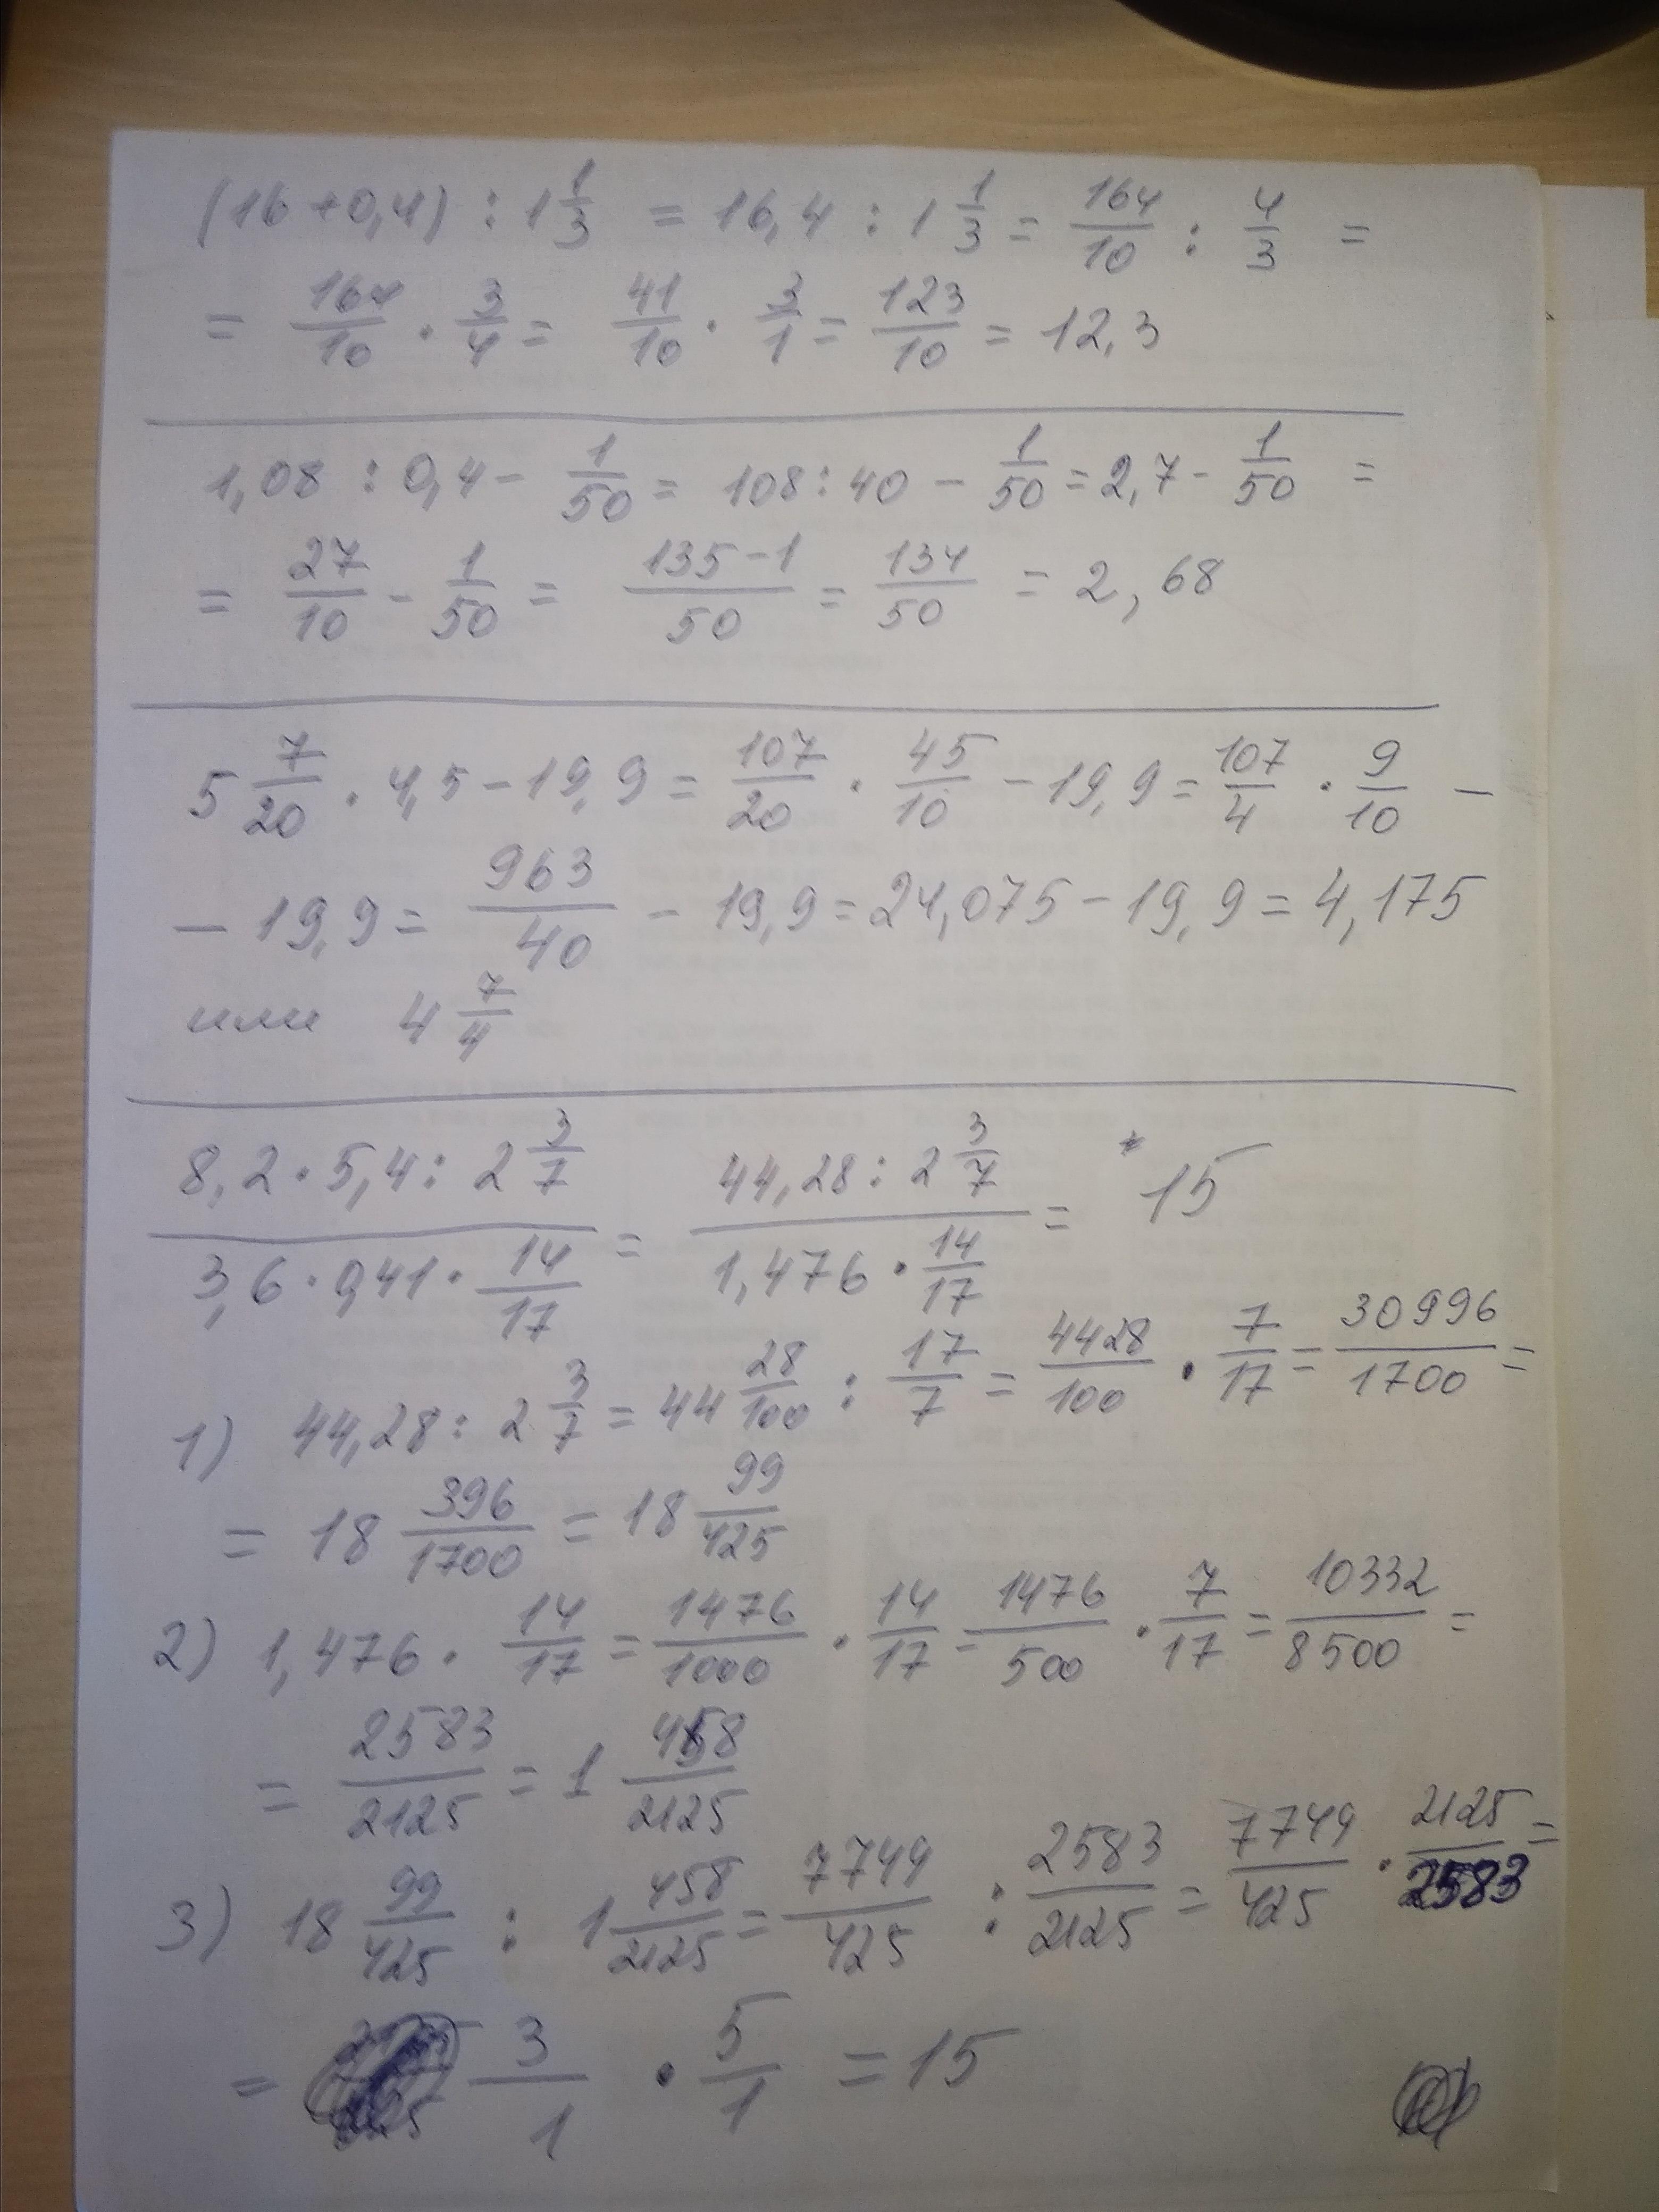 (16+0,4) : 1 1/3 = 16,4 : 1 1/3 = 164/10 : 4/3 =
= 164/10 · 3/4 = 41/10 · 3/1 = 123/10 = 12,3
1,08 : 0,4 - 1/50 = 108 : 40 - 1/50 = 2,7 - 1/50 =
= 27/10 - 1/50 = 135-1/50 = 134/50 = 2,68
5 7/20 · 4,5 - 19,9 = 107/20 · 45/10 - 19,9 = 107/4 · 9/10 -
- 19,9 = 963/40 - 19,9 = 24,075 - 19,9 = 4,175
или 4 7/4
8,2 · 5,4 : 2 3/7 / 3,6 · 0,41 · 14/17 = 44,28 : 2 3/7 / 1,476 · 14/17 = * 15
1) 44,28 : 2 3/7 = 44 28/100 : 17/7 = 4428/100 · 7/17 = 30996/1700 =
= 18 396/1700 = 18 99/425
2) 1,476 · 14/17 = 1476/1000 · 14/17 = 1476/500 · 7/17 = 10332/8500 =
= 2583/2125 = 1 458/2125
3) 18 99/425 : 1 458/2125 = 7749/425 : 2583/2125 = 7749/425 · 2125/2583 =
= 3/1 · 5/1 = 15